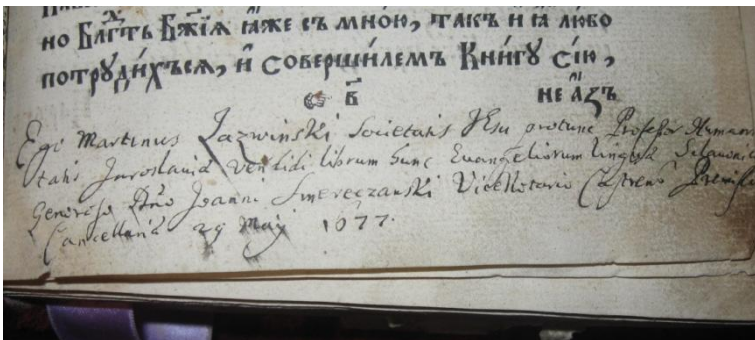 но Бл҃гть Бж҃їѧ ꙗже съ мно́ю, такъ и ꙗ любо
потруди́хъсѧ, и҆ соверши́лемъ Кни́гу сїю,
Ego Martinus Jazwinski Societatis Jesu protunc Professor Humani
tatis Jaroslaviæ vendidi librum hunc Euangeliorum linguæ Sclavonicæ
Generoso Dno Joanni Smereczanski ViceNotario Castrensi Premisl
Cancellariæ 29 Maij 1677.